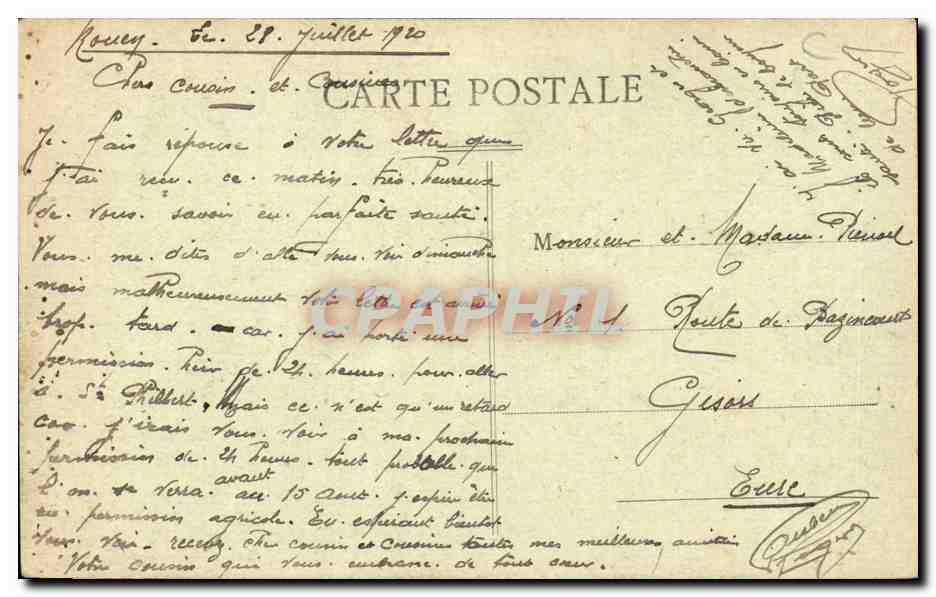 Rouen. Le 28 Juillet 1920
Chers cousin. et. Cousines
CARTE POSTALE
Je. fais réponse à votre lettre que
j'ai recu. ce. matin. très. heureux
de. vous. savoir en. parfaite santé.
Vous. me. dites d'allé vous. voir dimanche
mais malheureusement votre lettre est arrivé
trop. tard. - car. j'ai porté une
permission. hier de. 24 heures. pour. aller
à. St Philbert, Mais ce. n'est qu'un retard
car. j'irais vous. voir à ma. prochaine
permission de. 24 heures. tout probable. que
l'on se verra. avant au 15 Aout. j'espère être
en permission agricole. En. espérant bientot
vous. voir. recevez cher cousin et Cousines toutes mes meilleures amitiés
Votre cousin qui vous embrasse de tout coeur.
Monsieur et. Madame. Pienoel
No 1 Route de. Bazincourt
Gisors
Eure
CPAPHIL